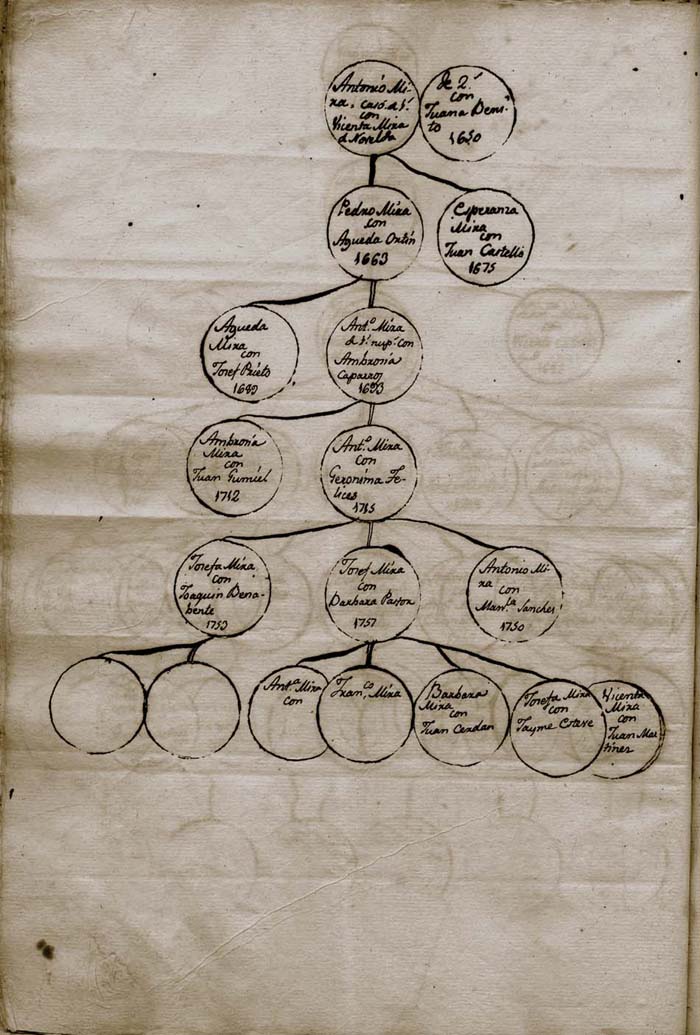 Antonio Mi-
ra, casó. d 1.ª
con
Vicenta Mira
d Novelda
de 2.ª
con
Juana Beni-
to
1650
Pedro Mira
con
Agueda Ortin
1663
Esperanza
Mira
con
Juan Castelló
1675
Agueda
Mira
con
Josef Prieto
1689
Ant.º Mira
d 1.ª nup.s con
Ambrosia
Caparros
1693
Ambrosia
Mira
con
Juan Gumiel
1712
Ant.º Mira
con
Geronima Fe-
lices
1715
Josefa Mira
con
Joaquin Bena-
bente
1753
Josef Mira
con
Barbara Pastor
1757
Antonio Mi-
ra
con
Man.la Sanches
1750
Ant.ª Mira
con
Fran.co Mira
Barbara
Mira
con
Juan Cerdan
Josefa Mira
con
Jayme Esteve
Vicenta
Mira
con
Juan Mar-
tines